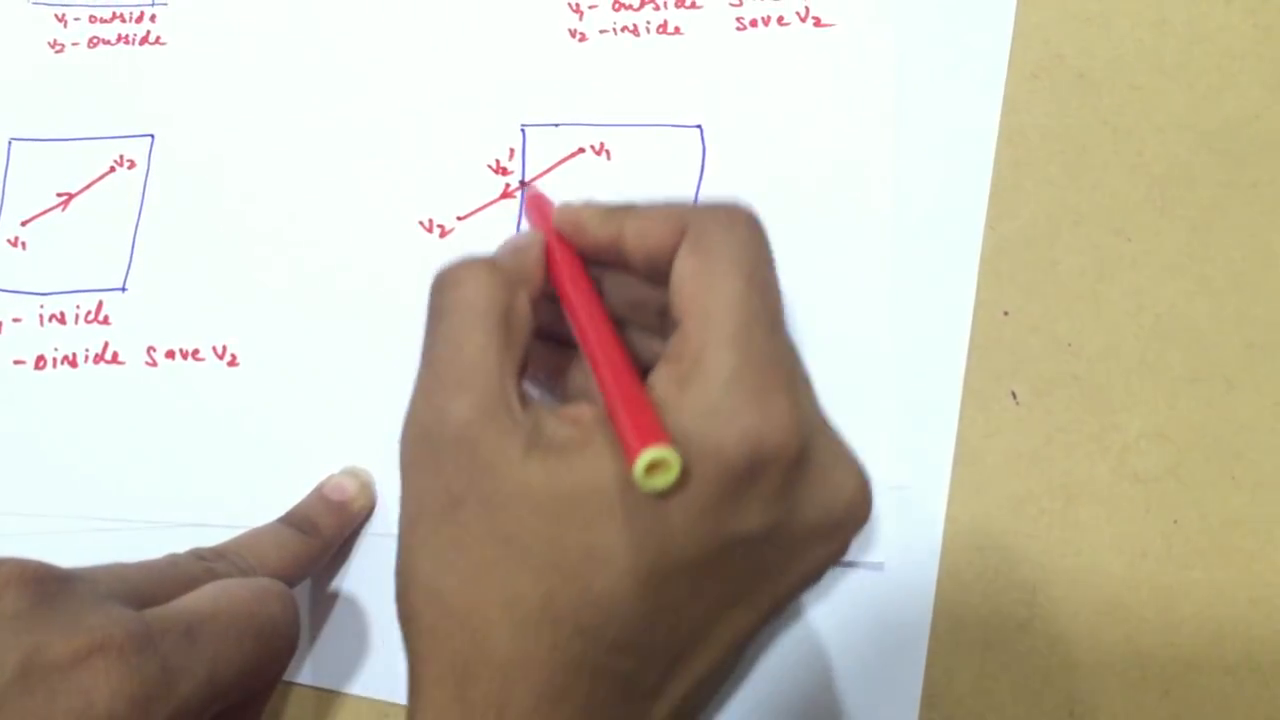 v1 - outside
v2 - outside
v1 - outside
v2 - inside save v2
v2
v1
- inside
- oinside save v2
v2'
v1
v2